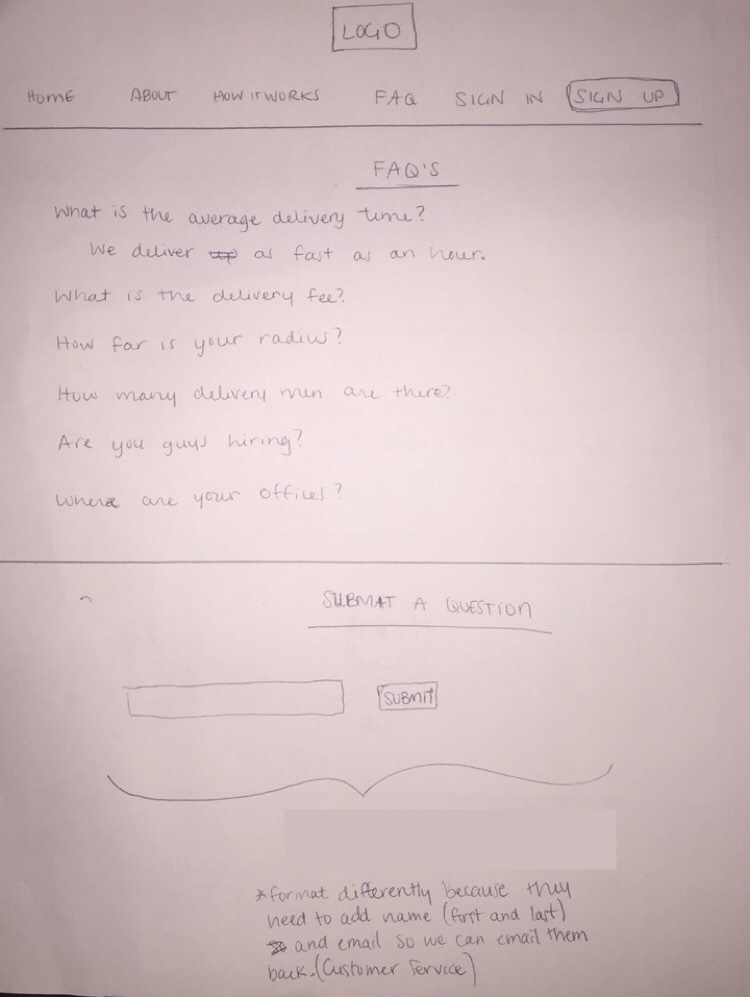 LOGO
Home ABOUT HOW IT WORKS FAQ SIGN IN SIGN UP
FAQ'S
What is the average delivery time?
We deliver up as fast as an hour.
What is the delivery fee?
How far is your radius?
How many delivery men are there?
Are you guys hiring?
Where are your offices?
SUBMAT A QUESTION
SUBMIT
*format differently because they
need to add name (first and last)
and email so we can email them
back. (Customer Service)